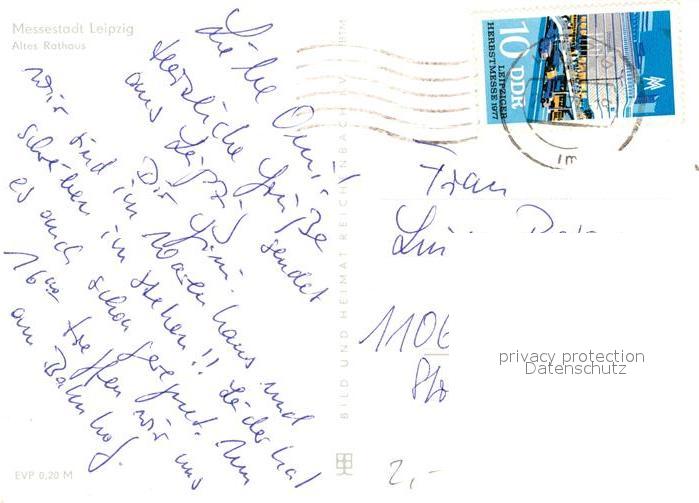 Messestadt Leipzig
Altes Rathaus
Liebe Omi!
Herzliche Grüße
aus Leipzig sendet
Dir
Wir sind im Warenhaus und
schreiben im stehen!! Leider hat
es auch schon geregnet. Um
16.00 treffen wir uns
am Bahnhof.
EVP 0,20 M
BILD UND HEIMAT REICHENBACH
10 DDR
LEIPZIGER
HERBSTMESSE 1977
Frau
1106
2,-
privacy protection
Datenschutz